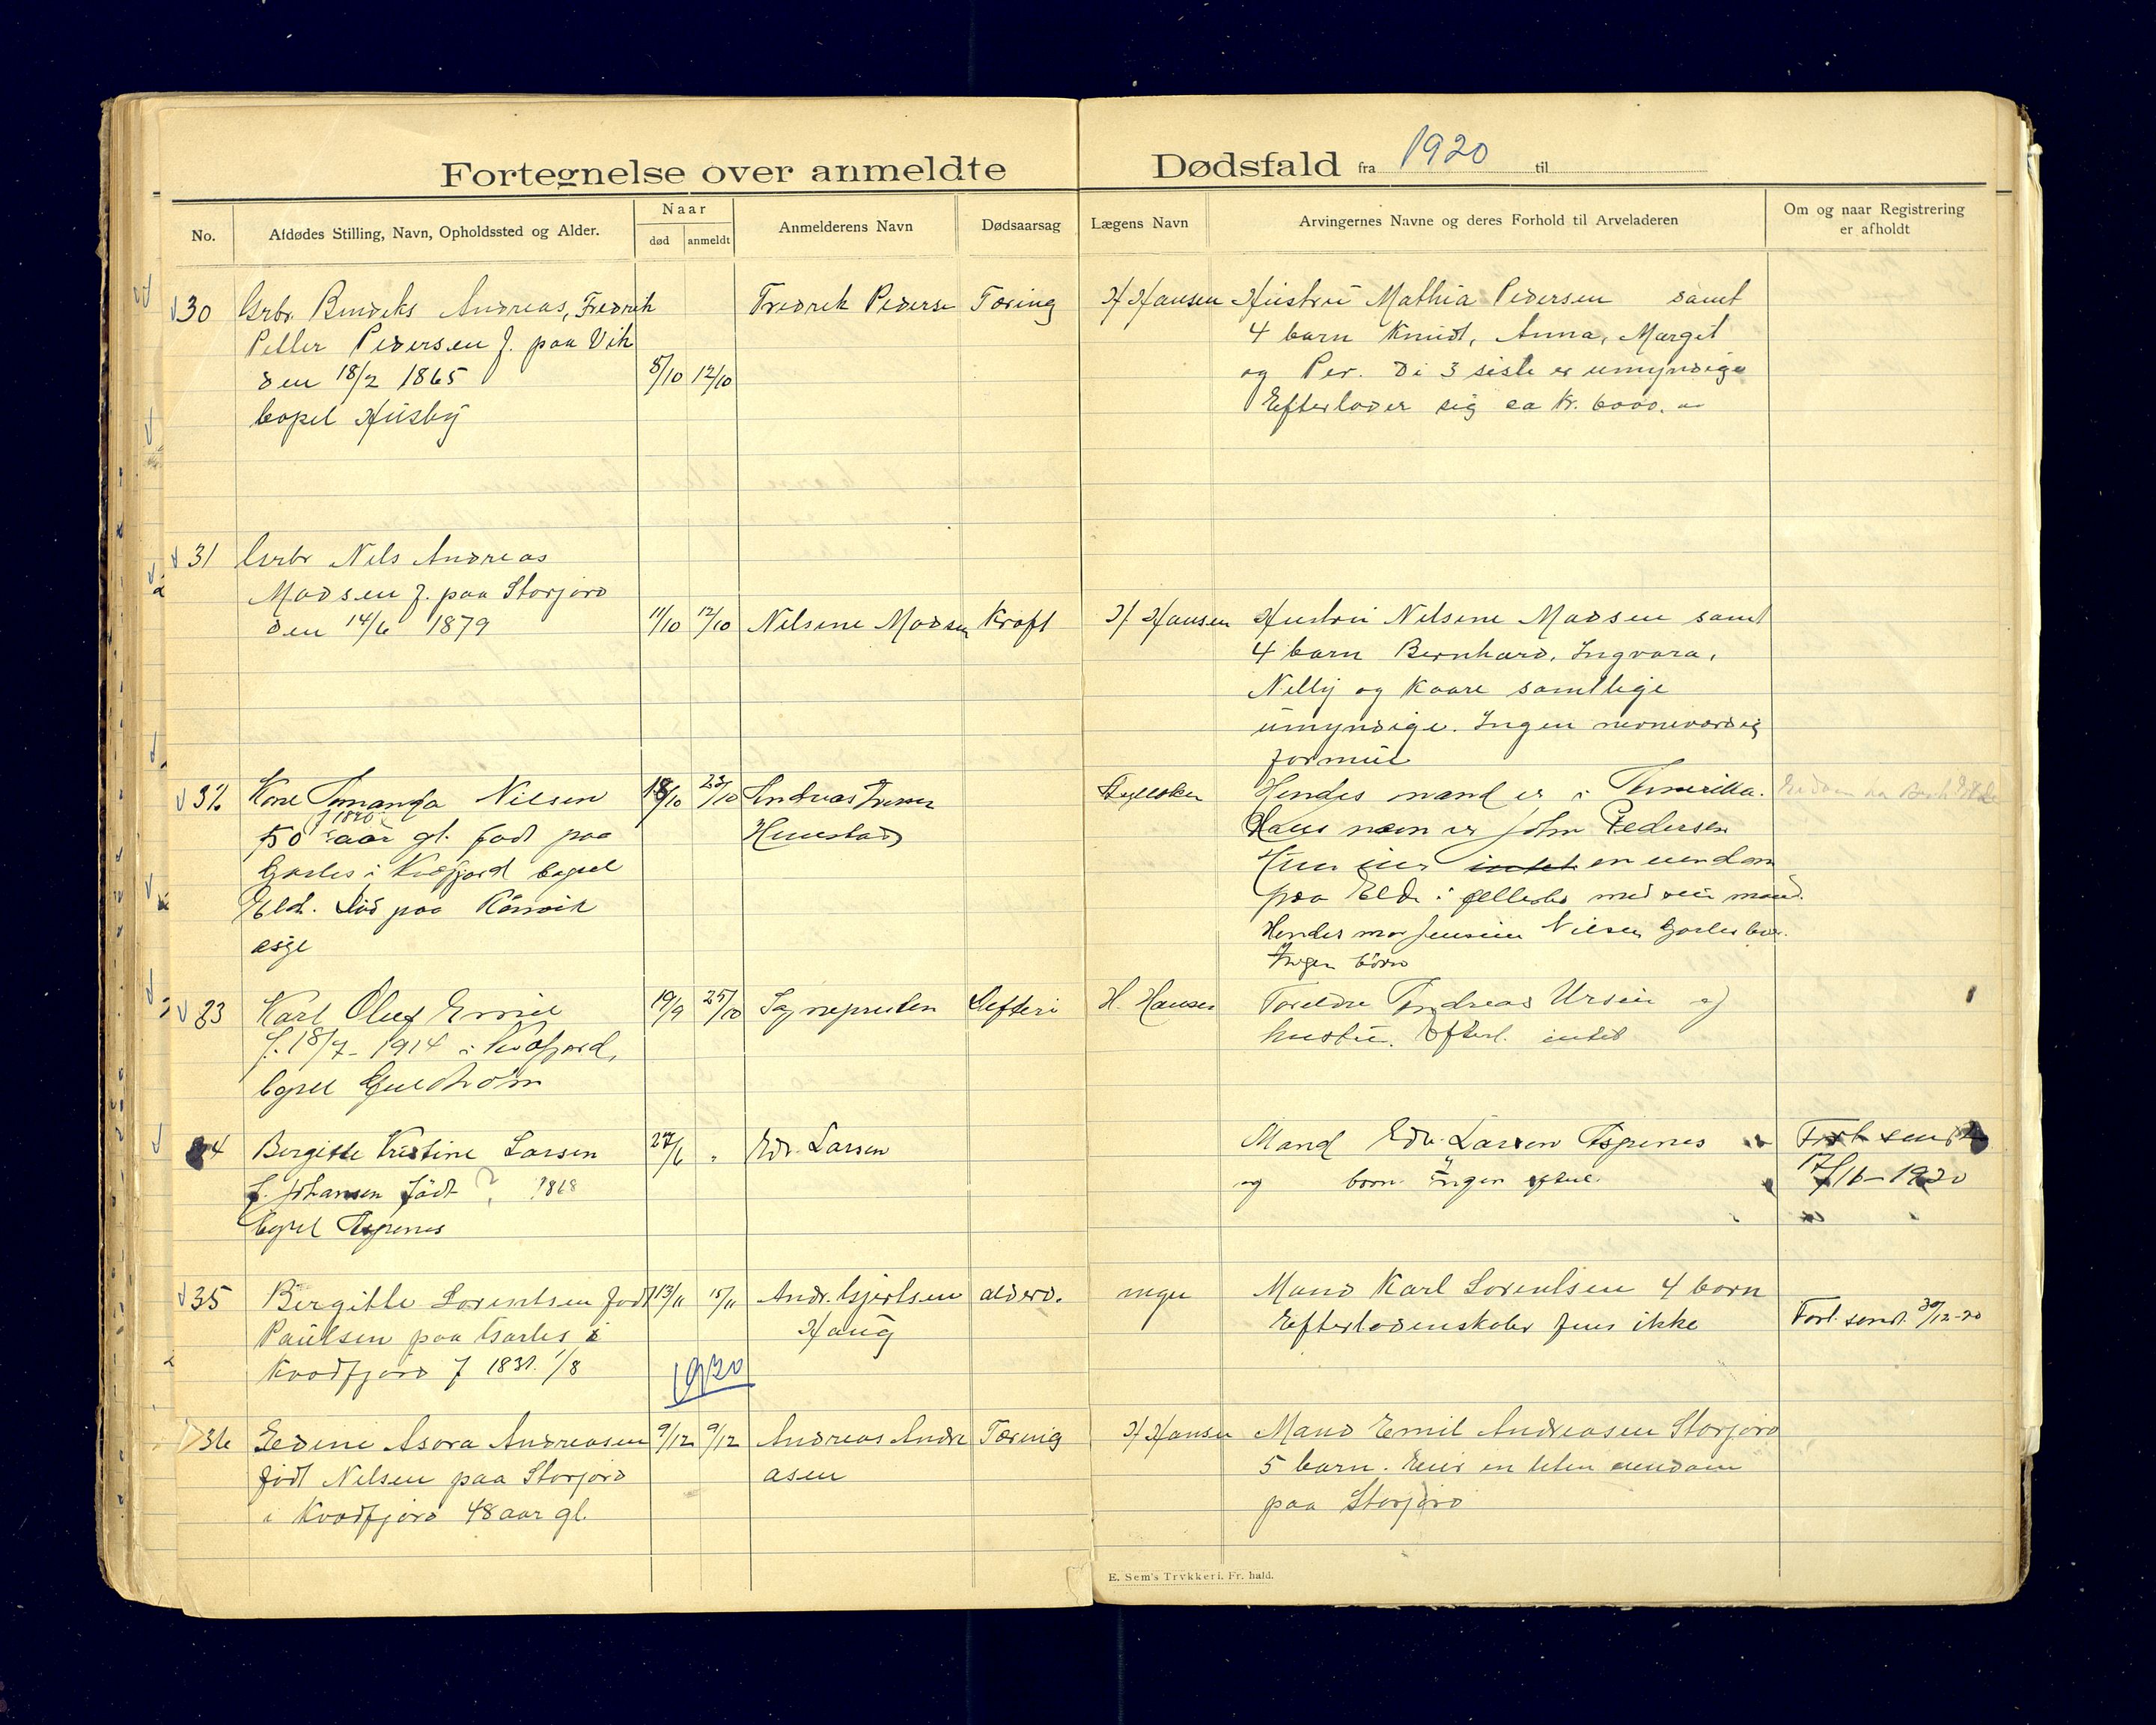 Fortegnelse over anmeldte Dødsfald fra 1920 til
No. Afdødes Stilling, Navn, Opholdssted og Alder. Naar død anmeldt Anmelderens Navn Dødsaarsag Lægens Navn Arvingernes Navne og deres Forhold til Arveladeren Om og naar Registrering er afholdt
30 Grbr. Andreas, Fredrik Fredrek Pederse Tæring H Hansen Hustru Mathia Pedersen samt
Petter Pedersen f. paa Vik 4 barn Knudt, Anna, Margit
den 18/2 1865 8/10 12/10 og Per. De 3 siste er umyndige
bopel Husby Efterlader sig ca kr. 6000.
31 Grbr Nils Andreas
Madsen f. paa Storjord
den 14/6 1879 11/10 12/10 Nilsine Madsen Kræft H Hansen Hustru Nilsine Madsen samt
4 barn Bernhard, Ingvara,
Nelly og Kaare samtlige
umyndige. Ingen nevneverdig
formue
32 Kone Amanda Nilsen 18/10 23/10 Andreas Hendes mand er i Amerika.
50 aar gl. født paa Hans navn er John Pedersen
i Kvæfjord bopel Hun eier intet en eiendom
Elde. Død paa paa Elde i felleseie med sin mand.
Hendes mor Nilsen
Ingen børn
33 Karl Oluf Emil 19/9 25/10 Sognepresten Difteri H. Hansen Foreldre Andreas Ursin og
f. 18/7-1914 i Kvæfjord, hustru. Efterl. intet
bopel Guldholm
34 Bergitte Kristine Larsen 27/6 " Edv. Larsen Mand Edv. Larsen Aspenes
f. Johansen født ? 1868 og børn. Ingen 1920
bopel Aspenes
35 Bergitte Lorentsen født 13/11 15/11 Andr. Gjertsen alderd. ingen Mand Karl Lorentsen 4 born
Paulsen paa i Haug Efterladenskaber fins ikke Fort. sendt. 30/12-20
Kvædfjord f 1831. 1/8 1920
36 Asora Andreasen 9/12 9/12 Andreas Andre Tæring H Hansen Mand Emil Andreasen Storjord
født Nilsen paa Storjord asen 5 barn. Eier en liten eiendom
i Kvædfjord 48 aar gl. paa Storjord
E. Sem's Trykkeri. Fr.hald.